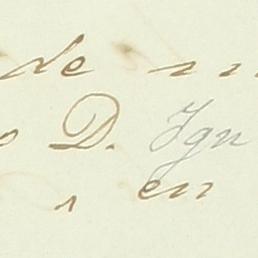 de
D. Ign
en